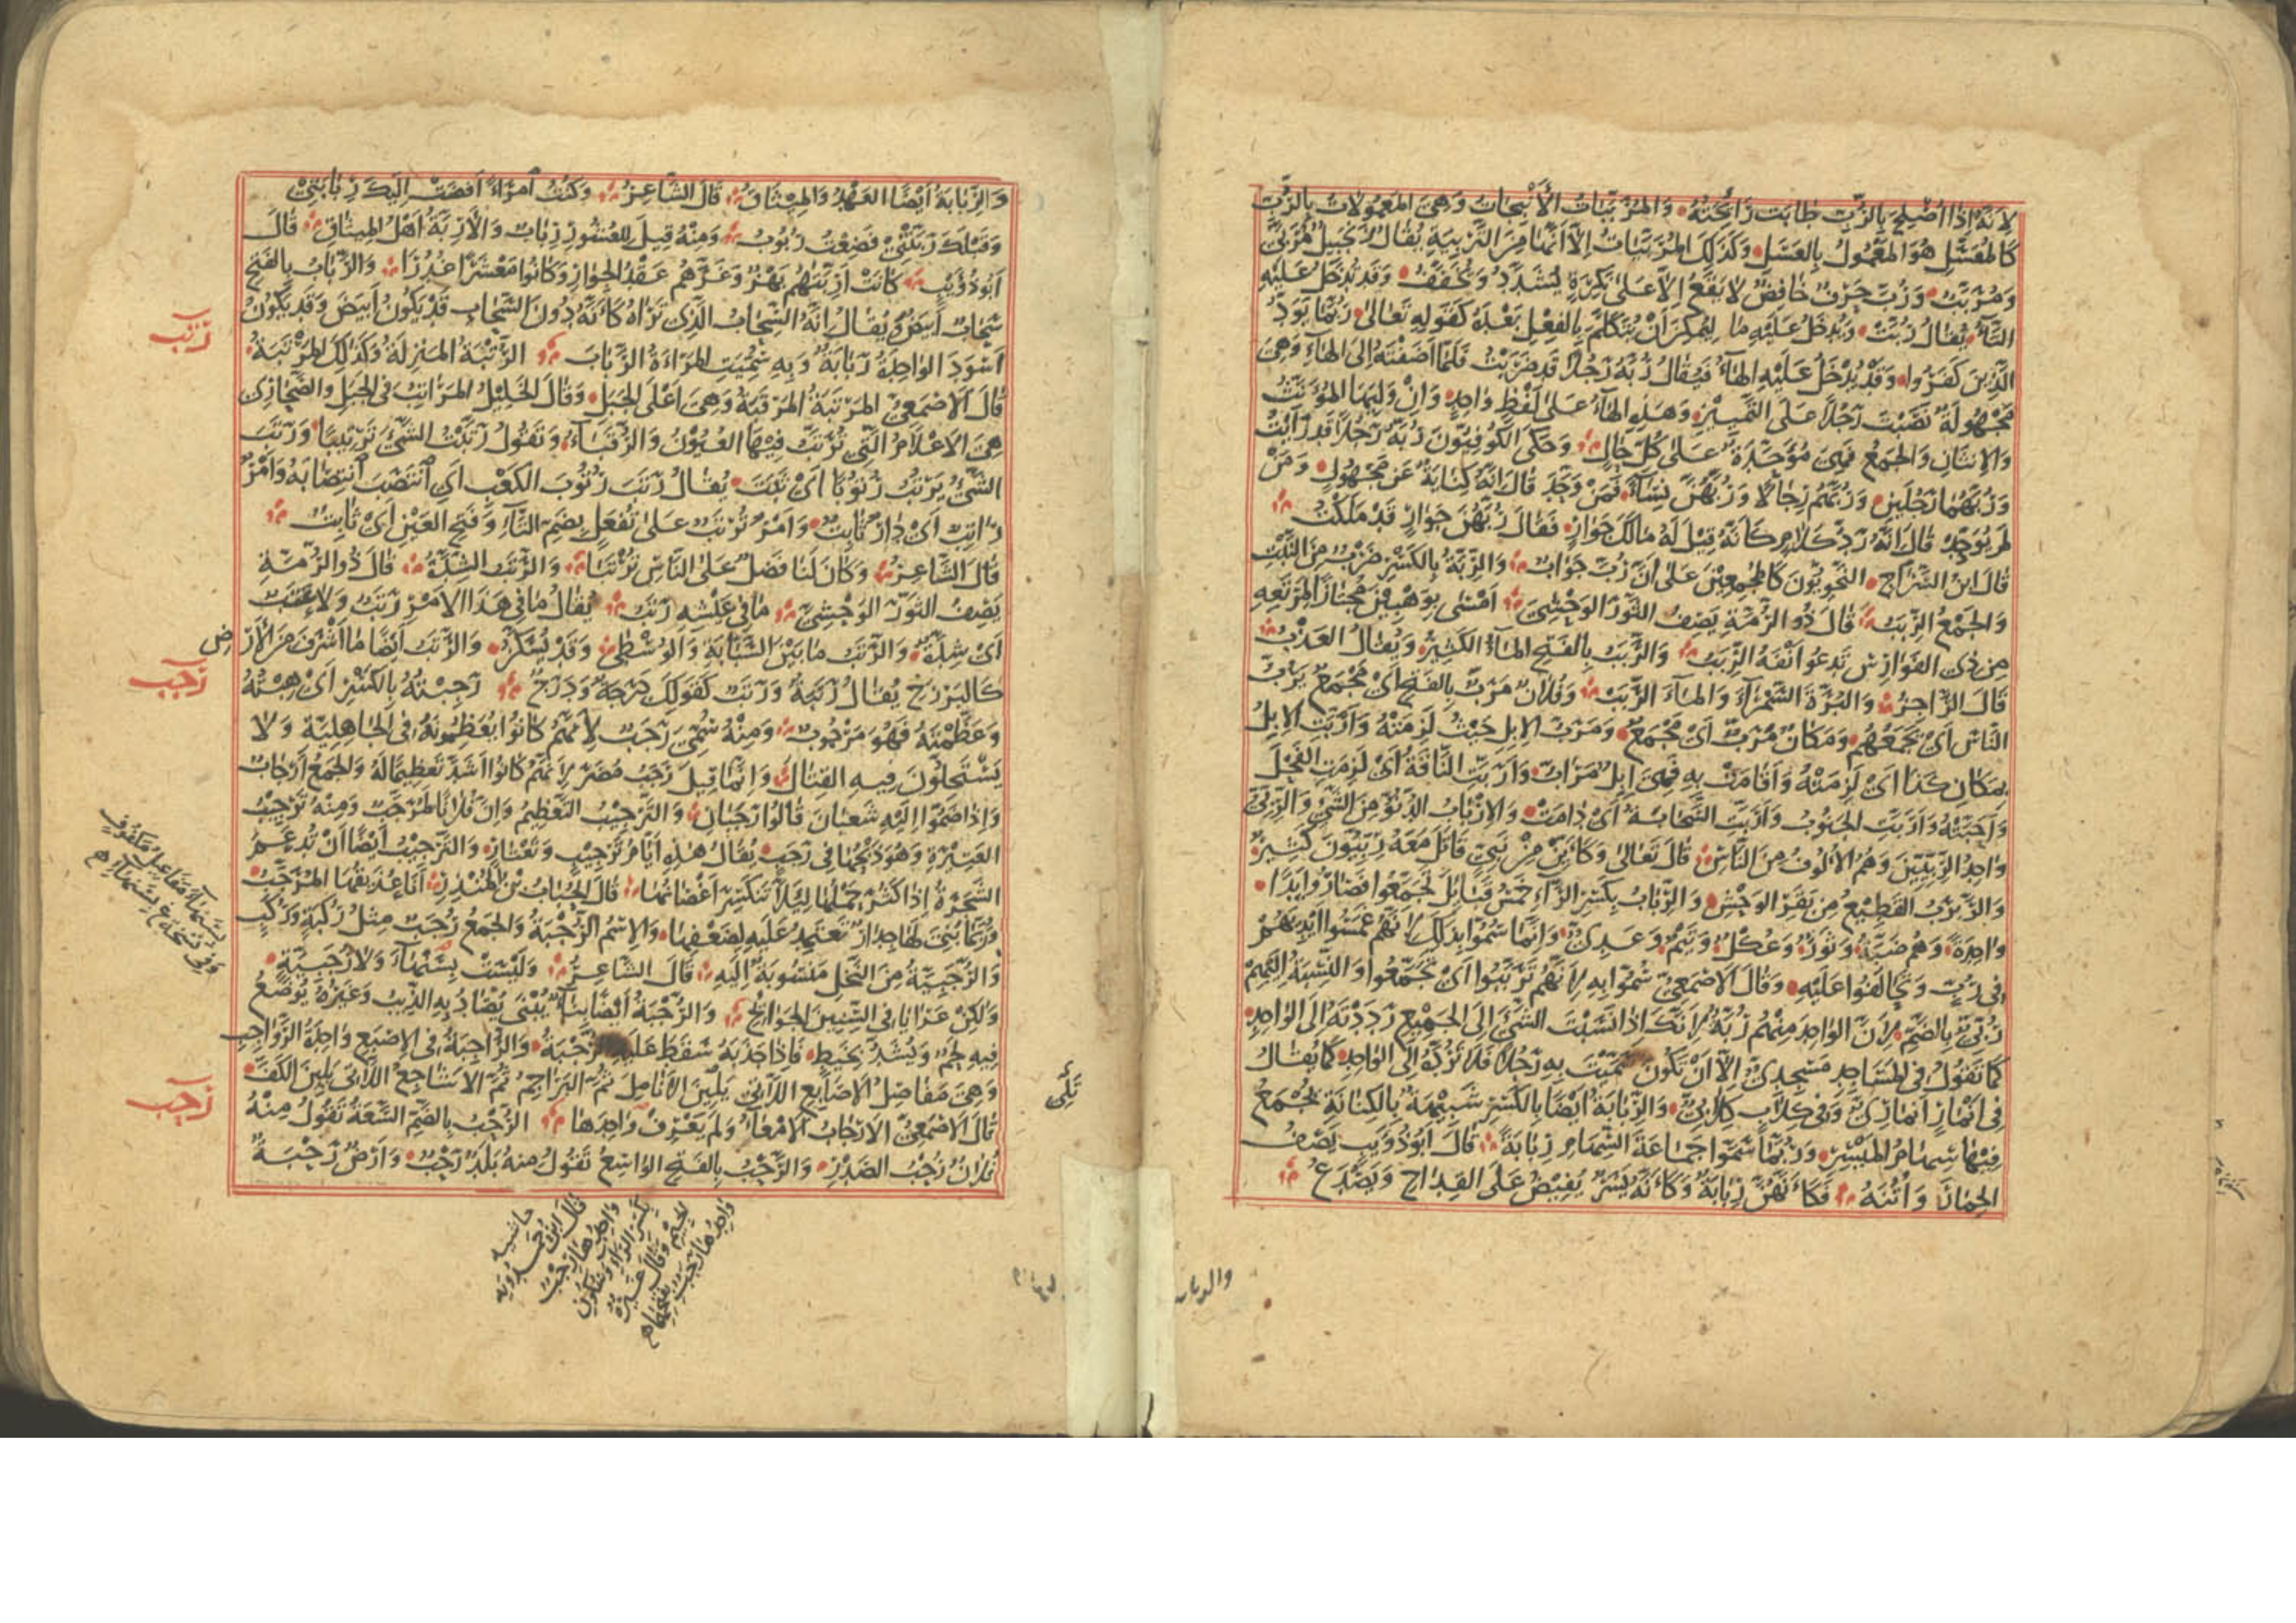 لِاَنَّهُ اِذَا اُصْلِحَ بِالرُّبِّ طَابَت رَائِحَتُهُ وَالمُرَبَّبَاتُ الأَنْبِجَاتُ وَهِيَ المَعْمُولَاتُ بِالرُّبِّ
كَالمُعَسَّلِ هُوَ المَعْمُولُ بِالعَسَلِ وَكَذٰلِكَ المُرَبَّيَاتُ اِلَّا اَنَّهَا مِنَ التَّرْبِيَةِ يُقَالُ زَنْجَبِيلٌ مُرَبًّى
وَمُرَبَّبٌ وَرُبَّ حَرْفٌ خَافِضٌ لَا يَقَعُ اِلَّا عَلىٰ نَكِرَةٍ يُشَدَّدُ وَيُخَفَّفُ وَقَد تُدْخَلُ عَلَيْهِ
التَّاءُ يُقَالُ رُبَّتْ وَيُدْخَلُ عَلَيْهِ مَا لِيُمْكِنَ اَنْ يُتَكَلَّمَ بِالفِعْلِ بَعْدَهُ كَقَولِهِ تَعَالىٰ رُبَمَا يَوَدُّ
الَّذِينَ كَفَرُوا وَقَدْ يُدْخَلُ عَلَيْهِ الهَاءُ فَيُقَالُ رُبَّهُ رَجُلًا قَد ضَرَبْتُ فَلَمَّا اَضَفْتَهُ اِلىَ الهَاءِ وَهِيَ
مَجْهُولَةٌ نَصَبْتَ رَجُلًا عَلَى التَّمْيِيْزِ وَهٰذِهِ الهَاءُ عَلىٰ لَفْظٍ وَاحِدٍ وَاِنْ وَلِيَهَا المُؤَنَّثُ
وَالاِثْنَانِ وَالجَمْعُ فَهِيَ مُوَحَّدَةٌ عَلىٰ كُلِّ حَالٍ وَحَكَى الكُوفِيُّونَ رُبَّهُ رَجُلًا قَدْ رَاَيْتُ
وَرُبَّهُمَا رَجُلَيْنِ وَرُبَّهُمْ رِجَالًا وَرُبَّهُنَّ نِسَاءً فَمَنْ وَحَّدَ قَالَ اِنَّهُ كِنَايَةٌ عَنْ مَجْهُولٍ وَمَنْ
لَم يُوَحِّدْ قَالَ اِنَّهُ رَدُّ كَلَامٍ كَاَنَّهُ قِيْلَ لَهُ مَالَكَ جَوَارٍ فَقَالَ رُبَّهُنَّ جَوَارٍ قَدْ مَلَكْتُ
قَالَ ابْنُ السَّرَّاجِ النَّحْوِيُّونَ كَالمُجْمِعِيْنَ عَلىٰ اَنَّ رُبَّ جَوَابٌ وَالرِّبَّةُ بِالكَسْرِ ضَرْبٌ مِنَ النَّبْتِ
وَالجَمْعُ الرِّبَبُ قَالَ ذُو الرُّمَّةِ يَصِفُ الثَّوْرَ الوَحْشِيَّ اَمْسٰى بِوَهْبِيْنَ مُجْتَازًا لِمَرْتَعِهِ
مِن ذِى الفَوَارِسِ تَدعُو اَنْفَهُ الرِّبَبُ وَالرَّبَبُ بِالفَتْحِ المَاءُ الكَثِيْرُ وَيُقَالُ العَذْبُ
قَالَ الرَّاجِزُ وَالبُرَّةَ السَّمْرَاءَ وَالمَاءَ الرَّبَبْ وَفُلَانٌ مَرَبٌّ بِالفَتْحِ اَيْ مَجْمَعٌ يَرُبُّ
النَّاسَ اَيْ يَجْمَعُهُم وَمَكَانٌ مَرَبٌّ اَيْ مَجْمَعٌ وَمَرَبُّ الاِبِلِ حَيْثُ لَزِمَتْهُ وَاَرَبَّتِ الاِبِلُ
بِمَكَانِ كَذَا اَيْ لَزِمَتْهُ وَاَقَامَتْ بِهِ فَهِيَ اِبِلٌ مَرَابُّ وَاَرَبَّتِ النَّاقَةُ اَيْ لَزِمَتِ الفَحْلَ
وَاَحَبَّتْهُ وَاَرَبَّتِ الجَنُوبُ وَاَرَبَّتِ السَّحَابَةُ اَيْ دَامَتْ وَالاِرْبَابُ الدُّنُوُّ مِنَ الشَّيْءِ وَالرِّبِّيُّ
وَاحِدُ الرِّبِّيِّينَ وَهُمُ الاُلُوفُ مِنَ النَّاسِ قَالَ تَعَالىٰ وَكَاَيِّنْ مِنْ نَبِيٍّ قَاتَلَ مَعَهُ رِبِّيُّونَ كَثِيرٌ
وَالرَّبْرَبُ القَطِيْعُ مِن بَقَرِ الوَحْشِ وَالرِّبَابُ بِكَسْرِ الرَّاءِ خَمْسُ قَبَائِلَ تَجَمَّعُوا فَصَارُوا يَدًا
وَاحِدَةً وَهُم ضَبَّةُ وَثَوْرٌ وَعُكْلٌ وَتَيْمٌ وَعَدِىٌّ وَاِنَّمَا سُمُّوا بِذٰلِكَ لِاَنَّهُم غَمَسُوا اَيْدِيَهُمْ
فِى رُبٍّ وَتَحَالَفُوا عَلَيْهِ وَقَالَ الاَصْمَعِيُّ سُمُّوا بِهِ لِاَنَّهُم تَرَبَّبُوا اَيْ تَجَمَّعُوا وَالنِّسْبَةُ اِلَيْهِمْ
رُبِّيٌّ بِالضَّمِّ لِاَنَّ الوَاحِدَ مِنْهُم رُبَّةٌ لِاَنَّكَ اِذَا نَسَبْتَ الشَّيْءَ اِلىَ الجَمِيْعِ رَدَدْتَهُ اِلىَ الوَاحِدِ
كَمَا تَقُولُ فِى المَسَاجِدِ مَسْجِدِىٌّ اِلَّا اَنْ تَكُونَ سَمَّيْتَ بِهِ رَجُلًا فَلَا تَرُدُّهُ اِلىَ الوَاحِدِ كَمَا يُقَالُ
فِى اَنْمَارٍ اَنْمَارِىٌّ وَفِى كِلَابٍ كِلَابِىٌّ وَالرِّبَابَةُ اَيْضًا بِالكَسْرِ شَبِيْهَةٌ بِالكِنَانَةِ يُجْمَعُ
فِيْهَا سِهَامُ المَيْسِرِ وَرُبَّمَا سَمَّوْا جَمَاعَةَ السِّهَامِ رِبَابَةً قَالَ اَبُو ذُؤَيْبٍ يَصِفُ
الحِمَارَ وَاُتْنَهُ فَكَاَنَّهُنَّ رِبَابَةٌ وَكَاَنَّهُ يَسَرٌ يُفِيْضُ عَلَى القِدَاحِ وَيَصْدَعُ
والرباب
وَالرِّبَابَةُ اَيْضًا العَهْدُ وَالمِيْثَاقُ قَالَ الشَّاعِرُ وَكُنْتُ امْرَاً اَفْضَتْ اِلَيْكَ رِبَابَتِيْ
وَقَبْلَكَ رَبَّتْنِيْ فَضِعْتُ رُبُوْبُ وَمِنْهُ قِيلَ لِلْعُشُورِ رِبَابٌ وَالاَرِبَّةُ اَهْلُ المِيْثَاقِ قَالَ
اَبُو ذُؤَيْبٍ كَانَتْ اَرِبَّتَهُمْ بَهْزٌ وَغَرَّهُمُ عَقْدُ الجِوَارِ وَكَانُوا مَعْشَرًا غُدُرَا وَالرَّبَابُ بِالفَتْحِ
سَحَابٌ اَبْيَضُ وَيُقَالُ اِنَّهُ السَّحَابُ الَّذِى تَرَاهُ كَاَنَّهُ دُونَ السَّحَابِ قَدْ يَكُونُ اَبْيَضَ وَقَد يَكُونُ
اَسْوَدَ الوَاحِدَةُ رَبَابَةٌ وَبِهِ سُمِّيَتِ المَرْاَةُ الرَّبَابَ الرُّتْبَةُ المَنْزِلَةُ وَكَذٰلِكَ المَرْتَبَةُ
رتب
قَالَ الاَصْمَعِيُّ المَرْتَبَةُ المَرْقَبَةُ وَهِيَ اَعْلَى الجَبَلِ وَقَالَ الخَلِيْلُ المَرَاتِبُ فِى الجَبَلِ وَالصَّحَارِى
هِيَ الاَعْلَامُ الَّتِي تُرَتَّبُ فِيْهَا العُيُوْنُ وَالرُّقَبَاءُ وَتَقُولُ رَتَّبْتُ الشَّيْءَ تَرْتِيْبًا وَرَتَبَ
الشَّيْءُ يَرْتُبُ رُتُوْبًا اَيْ ثَبَتَ يُقَالُ رَتَبَ رُتُوبَ الكَعْبِ اَيِ انْتَصَبَ انْتِصَابَهُ وَاَمْرٌ
رَاتِبٌ اَيْ دَارٌّ ثَابِتٌ وَاَمْرٌ تُرْتَبٌ عَلىٰ تُفْعَلٍ بِضَمِّ التَّاءِ وَفَتْحِ العَيْنِ اَيْ ثَابِتٌ
قَالَ الشَّاعِرُ وَكَانَ لَنَا فَضْلٌ عَلَى النَّاسِ تُرْتَبَا وَالرَّتَبُ الشِّدَّةُ قَالَ ذُو الرُّمَّةِ
يَصِفُ الثَّوْرَ الوَحْشِيَّ مَا فِى عَيْشِهِ رَتَبُ يُقَالُ مَا فِى هَذَا الاَمْرِ رَتَبٌ وَلَا عَتَبٌ
اَيْ شِدَّةٌ وَالرَّتَبُ مَا بَيْنَ السَّبَّابَةِ وَالوُسْطىٰ وَقَدْ يُسَكَّنُ وَالرَّتَبُ اَيْضًا مَا اَشْرَفَ مِنَ الاَرْضِ
كَالبَرْزَخِ يُقَالُ رَتَبَةٌ وَرَتَبٌ كَقَولِكَ دَرَجَةٌ وَدَرَجٌ رَجِبْتُهُ بِالكَسْرِ اَيْ هِبْتُهُ
رجب
وَعَظَّمْتُهُ فَهُوَ مَرْجُوبٌ وَمِنْهُ سُمِّيَ رَجَبٌ لِاَنَّهُمْ كَانُوا يُعَظِّمُونَهُ فِى الجَاهِلِيَّةِ وَلَا
يَسْتَحِلُّونَ فِيهِ القِتَالَ وَاِنَّمَا قِيلَ رَجَبُ مُضَرَ لِاَنَّهُمْ كَانُوا اَشَدَّ تَعْظِيمًا لَهُ وَالجَمْعُ اَرْجَابٌ
وَاِذَا ضَمُّوْا اِلَيْهِ شَعْبَانَ قَالُوا رَجَبَانِ وَالتَّرْجِيْبُ التَّعْظِيمُ وَاِنَّ فُلَانًا لَمُرَجَّبٌ وَمِنْهُ تَرْجِيْبُ
العَتِيْرَةِ وَهُوَ ذَبْحُهَا فِى رَجَبٍ يُقَالُ هٰذِهِ اَيَّامُ تَرْجِيْبٍ وَتَعْتَارٍ وَالتَّرْجِيْبُ اَيْضًا اَنْ تُدْعَمَ
الشَّجَرَةُ اِذَا كَثُرَ حَمْلُهَا لِئَلَّا تَنْكَسِرَ اَغْصَانُهَا قَالَ الحُبَابُ بْنُ المُنْذِرِ اَنَا عُذَيْقُهَا المُرَجَّبُ
وَرُبَّمَا بُنِيَ لَهَا جِدَارٌ تَعْتَمِدُ عَلَيْهِ لِضَعْفِهَا وَالاِسْمُ الرُّجْبَةُ وَالجَمْعُ رُجَبٌ مِثْلُ رُكْبَةٍ وَرُكَبٍ
وَالرُّجَبِيَّةُ مِنَ النَّخْلِ مَنْسُوبَةٌ اِلَيْهِ قَالَ الشَّاعِرُ وَلَيْسَتْ بِسَنْهَاءٍ وَلَا رُجَبِيَّةٍ
وَلٰكِنْ عَرَايَا فِى السِّنِيْنَ الجَوَائِحِ وَالرُّجْبَةُ اَيْضًا بِنَاءٌ يُبْنٰى يُصَادُ بِهِ الذِّيبُ وَغَيْرُهُ يُوْضَعُ
فِيهِ لَحْمٌ وَيُشَدُّ بِخَيْطٍ فَاِذَا جَذَبَهُ سَقَطَ عَلَيْهِ الرُّجْبَةُ وَالرَّاجِبَةُ فِى الاِصْبَعِ وَاحِدَةُ الرَّوَاجِبِ
وَهِيَ مَفَاصِلُ الاَصَابِعِ اللَّاتِي يَلِيْنَ الاَنَامِلَ ثُمَّ البَرَاجِمُ ثُمَّ الاَشَاجِعُ اللَّاتِى يَلِيْنَ الكَفَّ
قَالَ الاَصْمَعِيُّ الاَرْجَابُ الاَمْعَاءُ وَلَمْ يَعْرِفْ وَاحِدَهَا الرُّحْبُ بِالضَّمِّ السَّعَةُ تَقُولُ مِنْهُ
رحب
فُلَانٌ رُحْبُ الصَّدْرِ وَالرَّحْبُ بِالفَتْحِ الوَاسِعُ تَقُولُ مِنهُ بَلَدٌ رَحْبٌ وَاَرْضٌ رَحْبَةٌ
حاشيه
قَالَ ابْنُ حَمْدَوَيْه
وَاحِدُهَا رِجْبٌ
بِكَسْرِ الرَّاءِ وَسُكُونِ
الجِيْمِ وَقَالَ غَيْرُهُ
وَاحِدُهَا رَجَبٌ بِفَتْحِهَا